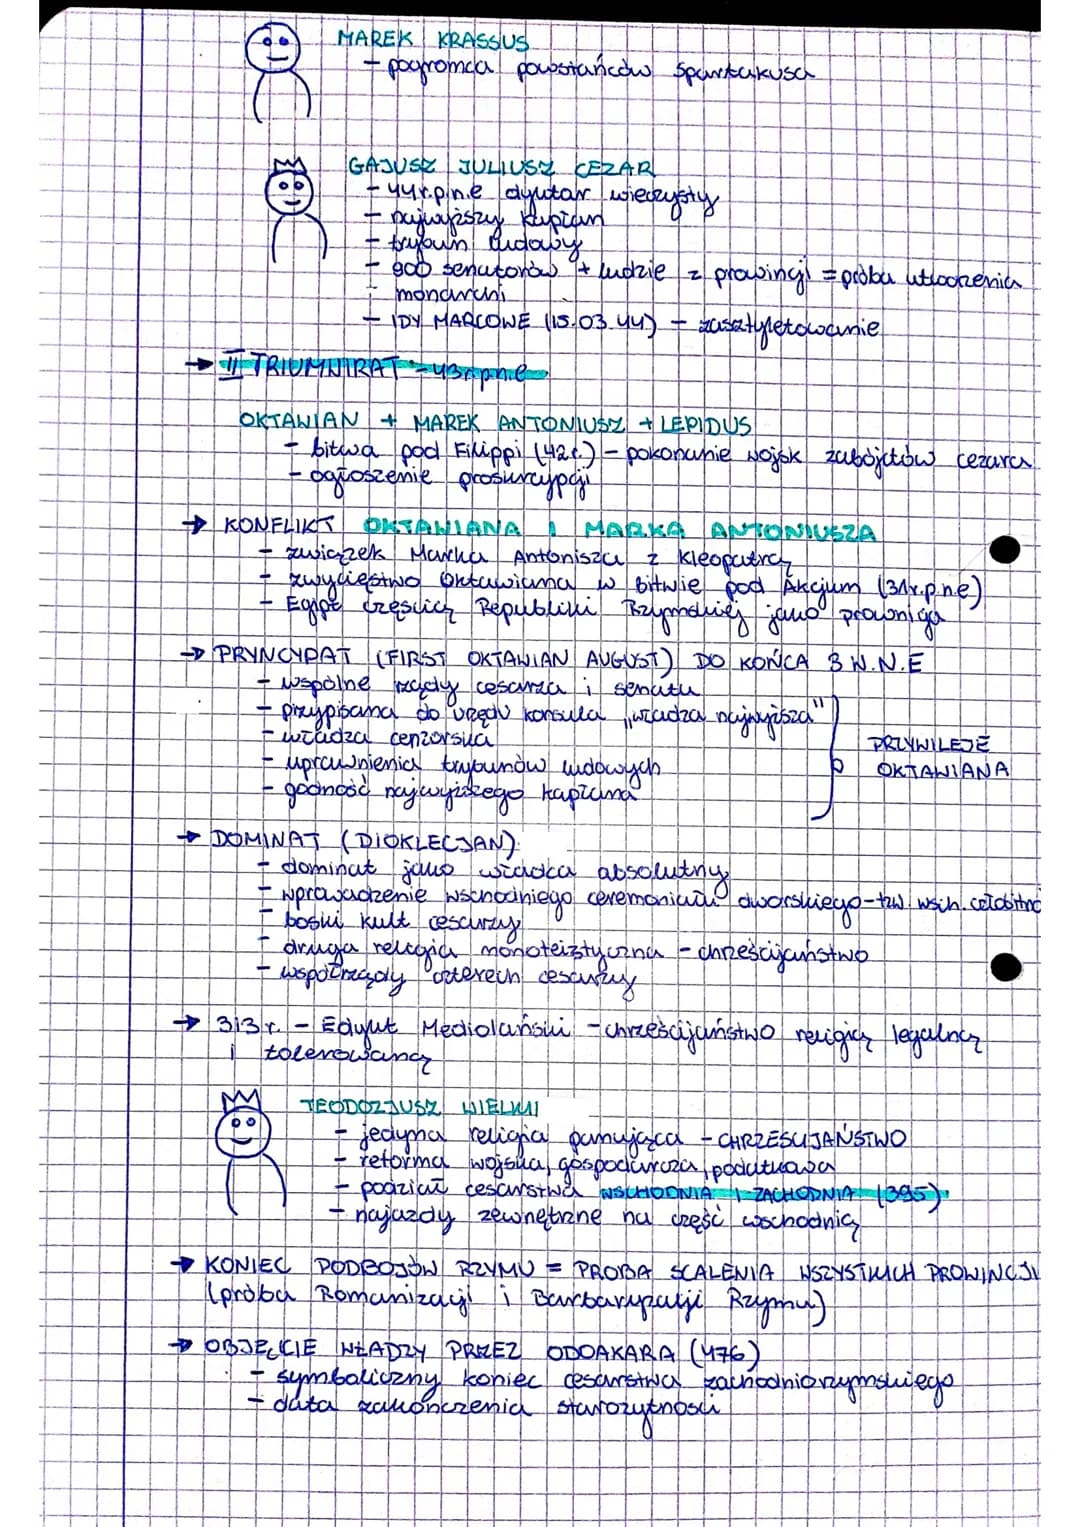 MAREK KRASSUS
- pogromca powstańców Spartakusa
GAJUSZ JULIUSZ CEZAR
- 44r.p.n.e dyktator wieczysty
- najwyższy kapłan
- trybun ludowy
- 900 senatorów + ludzie z prowincji = próba utworzenia
monarchi
- IDY MARCOWE (15.03.44) - zasztyletowanie
→ II TRIUMWIRAT - 43r.p.n.e
OKTAWIAN + MAREK ANTONIUSZ + LEPIDUS
- bitwa pod Filippi (42r.) - pokonanie wojsk zabójców cezara
- ogłoszenie proskrypcji
→ KONFLIKT OKTAWIANA I MARKA ANTONIUSZA
- związek Marka Antonisza z Kleopatrą
- zwycięstwo Oktawiana w bitwie pod Akcjum (31r.p.n.e)
- Egipt częścią Republiki Rzymskiej jako prowincja
→ PRYNCYPAT (FIRST OKTAWIAN AUGUST) DO KOŃCA 3 W.N.E
- wspólne rządy cesarza i senatu
- przypisana do urzędu konsula „władza najwyższa"
- władza cenzorska
- uprawnienia trybunów ludowych
- godność najwyższego kapłana
PRZYWILEJE
OKTAWIANA
→ DOMINAT (DIOKLECJAN)
- dominat jako władca absolutny
- wprawadzenie wschodniego ceremoniału dworskiego - tzw. wsch. czołobitność
- boski kult cesarzy
- druga religia monoteistyczna - chrześcijaństwo
- współrządy czterech cesarzy
→ 313r. - Edykt Mediolański - chrześcijaństwo religią legalną
i tolerowaną
TEODOZJUSZ WIELKI
- jedyna religia panująca - CHRZEŚCIJAŃSTWO
- reforma wojska, gospodarcza, podatkowa
- podział cesarstwa WSCHODNIA I ZACHODNIA (395)
- najazdy zewnętrzne na część wschodnią
→ KONIEC PODBOJÓW RZYMU = PRÓBA SCALENIA WSZYSTKICH PROWINCJI
(próba Romanizacji i Barbaryzacji Rzymu)
→ OBJĘCIE WŁADZY PRZEZ ODOAKARA (476)
- symboliczny koniec cesarstwa zachodniorzymskiego
- data zakończenia starożytności